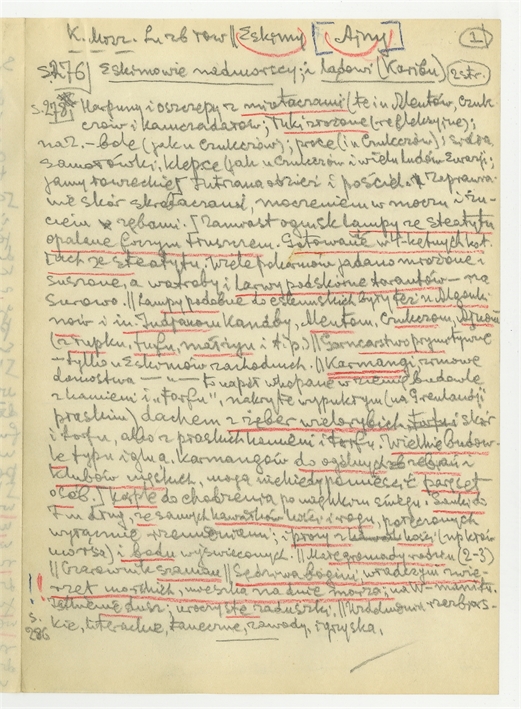 K. Mosz. Lu zb row || Eskimy [Ajny] 1
s.276] Eskimowie nadmorscy; i lądowi (Karibu) 2 str.
s.278 Harpuny i oszczepy z miotaczami (te i u Aleutów, Czuk-
czów i Kamczadalów); łuki złożone (refleksyjne);
noż.-bole (jak u Czukczów); proce (i u Czukczów); sidła
samołówki; klepce (jak u Czukczów i wielu ludów Eurazji;
jamy łowieckie] Futrana odzież i pościel. Wyprawia-
nie skór skrobaczami, moczeniem w moczu i żu-
ciem zębami. [Zamiast ognisk lampy ze steatytu
opalane tłuszczem. Gotowanie w 4-kątnych kot-
łach ze steatytu; wiele pokarmów jadano mrożone i
suszone, a wątroby i larwy podskórne tarantów - na
surowo. || Lampy podobne do eskimoskich były też u Algonki-
nów i in. Indjanom Kanady, Aleutom, Czukczom, Ajnom
(z łupku, tufu, i t.p.) || Garncarstwo prymitywne
- tylko u Eskimów zachodnich. || Karmangi, zimowe
domostwa - to na pół wkopane w ziemię budowle
z kamieni i "torfu", nakryte wypukłym (na Grenlandji
płaskim) dachem z żeber wielorybich, skór
i torfu, albo z płaskich kamieni i torfu. Wielkie budow-
le typu karmangów do ogólnych zebrań
klubów męskich, mogą niekiedy pomieścić paręset
osób. ] do chodzenia po miękkim śniegu. Sanki do
ze samych kawałków kości i rogu, połączonych
wyłącznie rzemieniami; i płozy z kości (np. kłów
morsa) i wyświeconych. || Małe gromady rodzin (2-3)
|| Czarownik szaman || bogini, władczyni zwie-
rząt morskich, mieszka na dnie morza; na W-
dusz; uroczyste zaduszki. || Uzdolnienia rzeźbiars-
s.286 kie, literackie, taneczne, zawody, igrzyska.